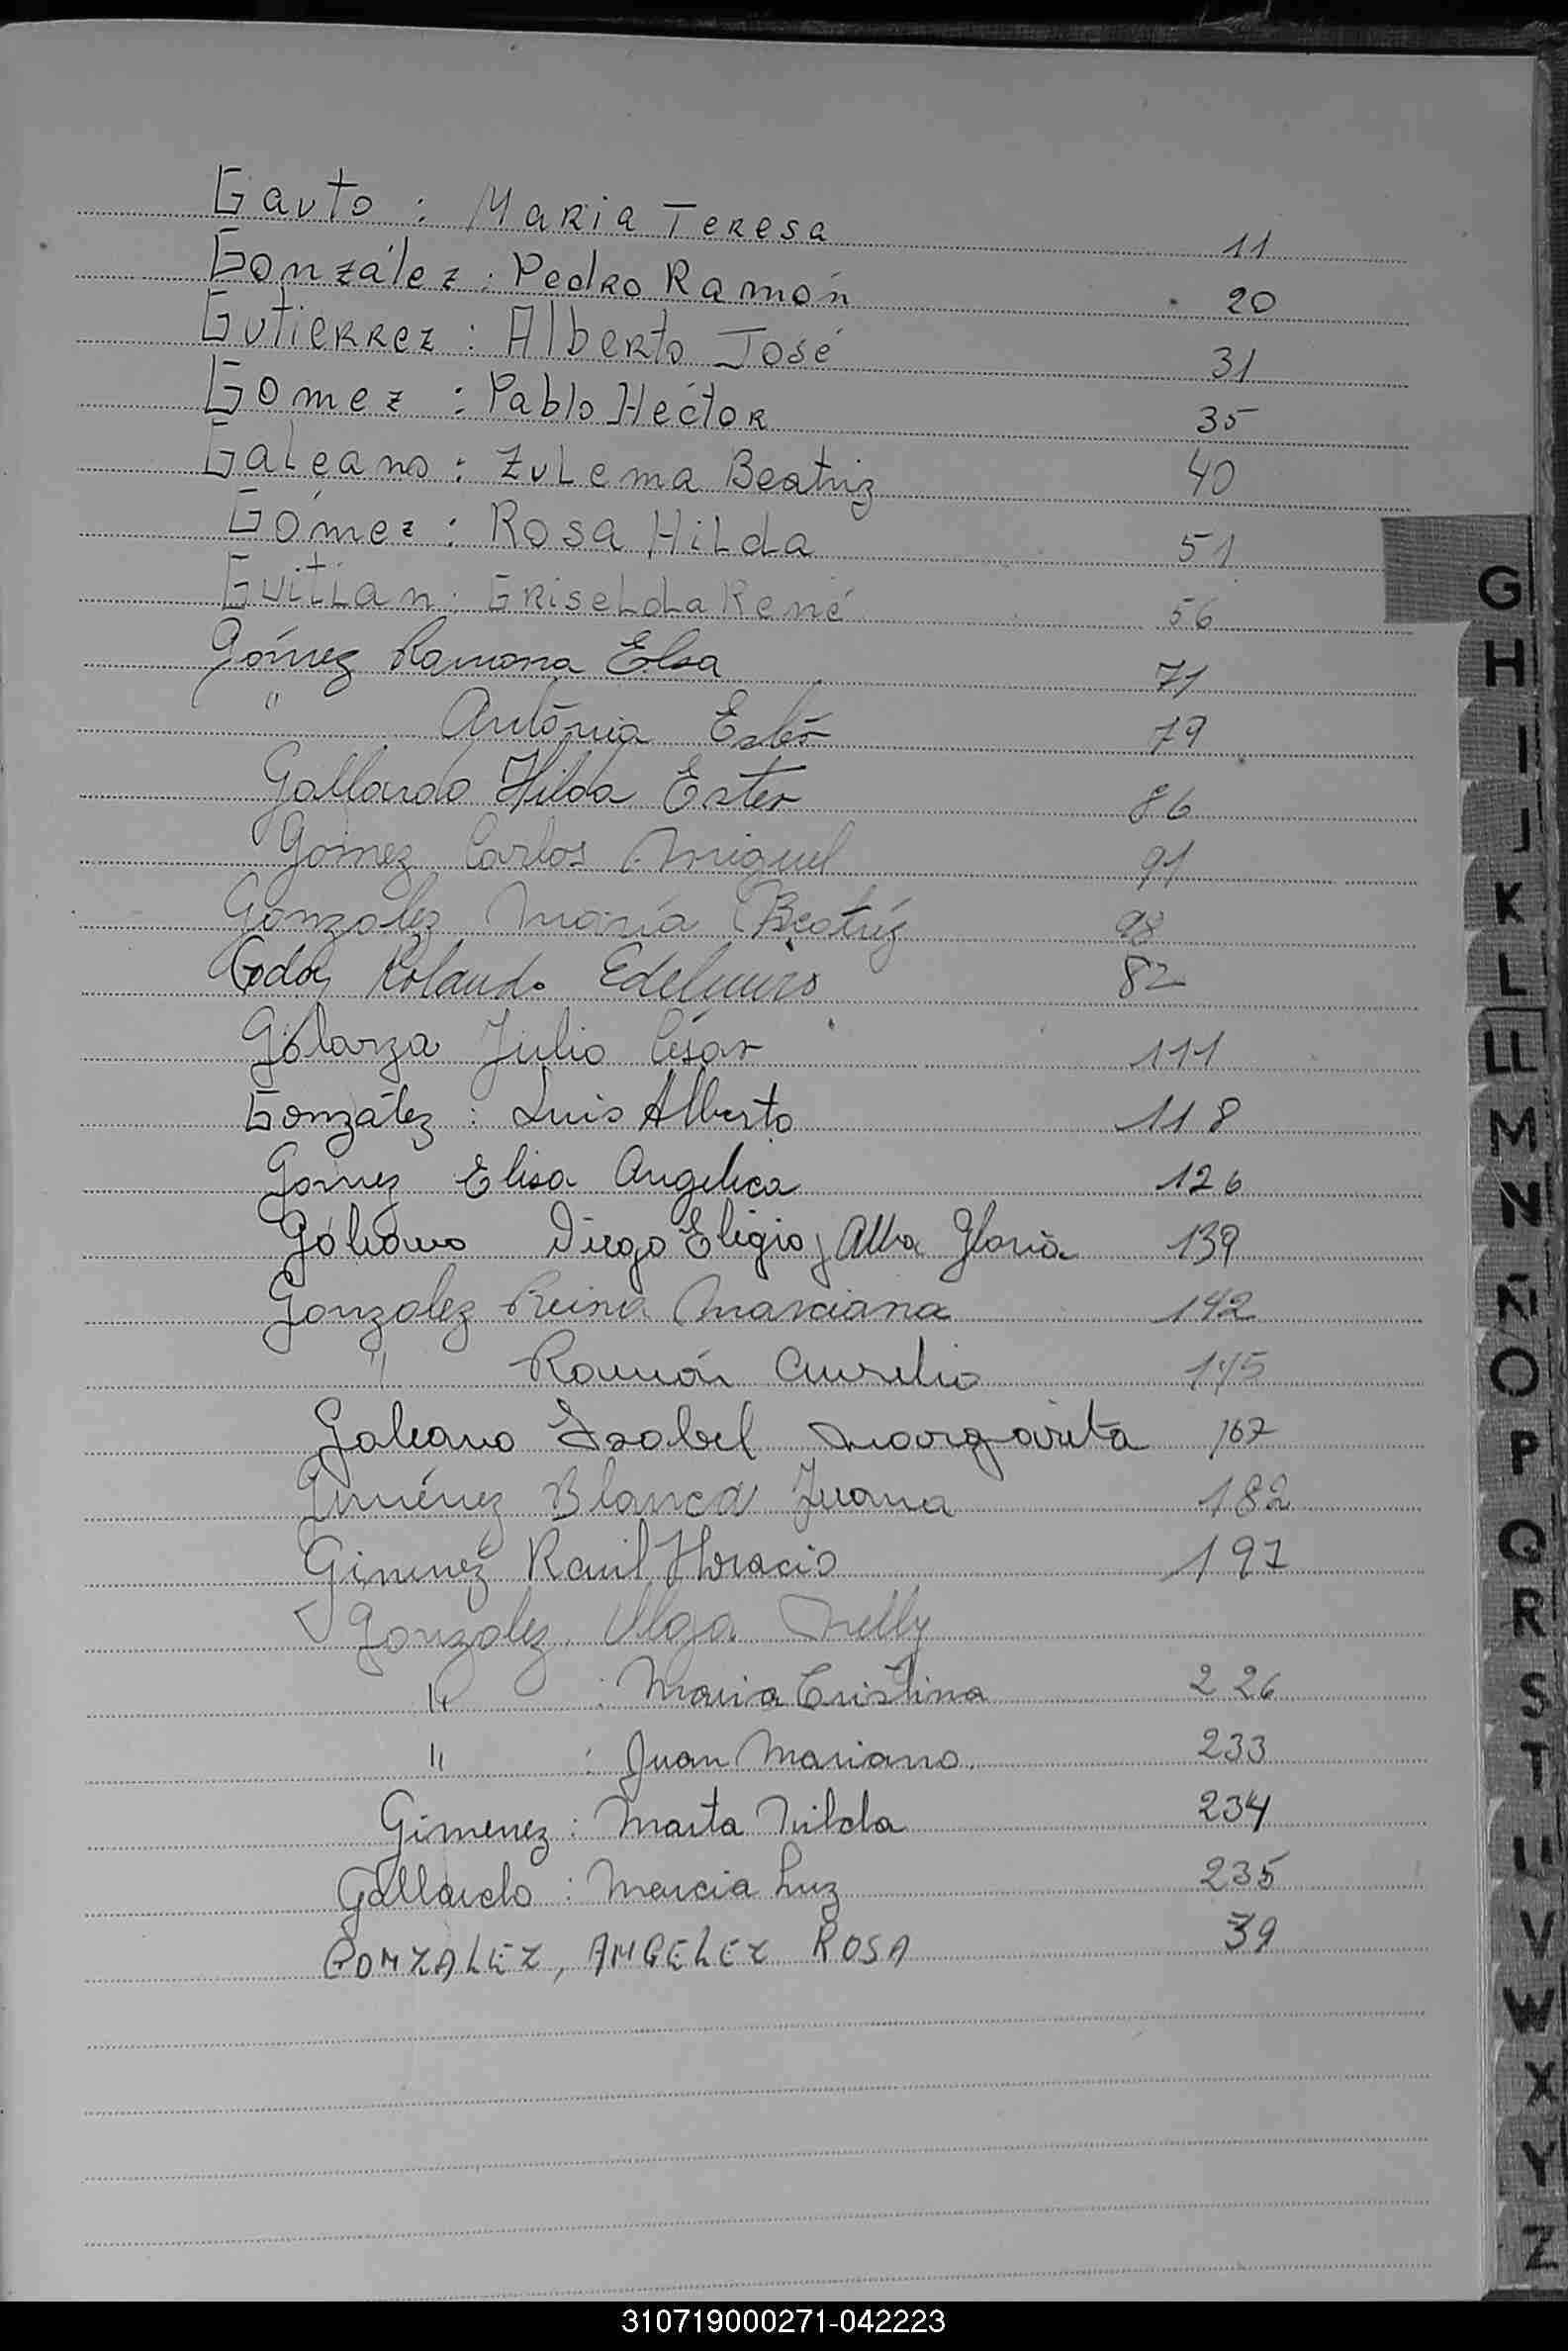 Gauto : Maria Teresa 11
González : Pedro Ramón 20
Gutierrez : Alberto José 31
Gomez : Pablo Hector 35
Galeano : Zulema Beatriz 40
Gómez : Rosa Hilda 51
Guitian : Griselda René 56
Gómez Ramona Elsa 71
" Antonia Ester 79
Gallardo Hilda Ester 86
Gómez Carlos Miguel 91
Gonzalez María Beatríz 98
Godoy Rolando Edelmiro 82
Galarza Julio César 111
González : Luis Alberto 118
Gomez Elisa Angelica 126
Galeano Diego Eligio y Alba Gloria 139
Gonzalez Reina Marciana 142
" Ramón Aurelio 145
Galeano Isabel Margarita 167
Giménez Blanca Juana 182
Gimenez Raul Horacio 197
Gonzalez Olga Nelly
" : Maria Cristina 226
" : Juan Mariano. 233
Gimenez : Marta Nilda 234
Gallardo : Marcia Luz 235
GONZALEZ, ANGELEZ ROSA 39
G
H
I
J
K
L
LL
M
N
Ñ
O
P
Q
R
S
T
U
V
W
X
Y
Z
310719000271-042223